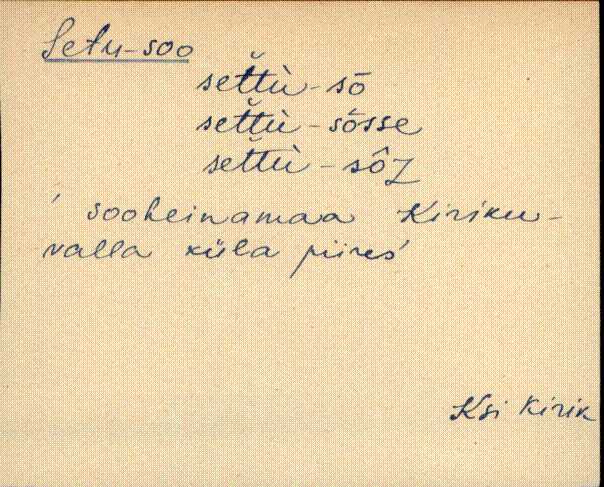 Setu-soo
set̆t̆ù-sō
set̆t̆ù-sōsse
set̆t̆ù-sôʒ
' sooheinamaa Kiriku-
valla küla piires'
Ksi Kirik